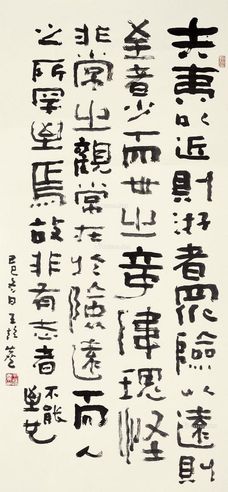 夫夷以近則游者眾險以遠則
至者少而世之奇偉瑰怪
非常之觀常在於險遠而人
之所罕至焉故非有志者不能至也
己巳冬日王蘧